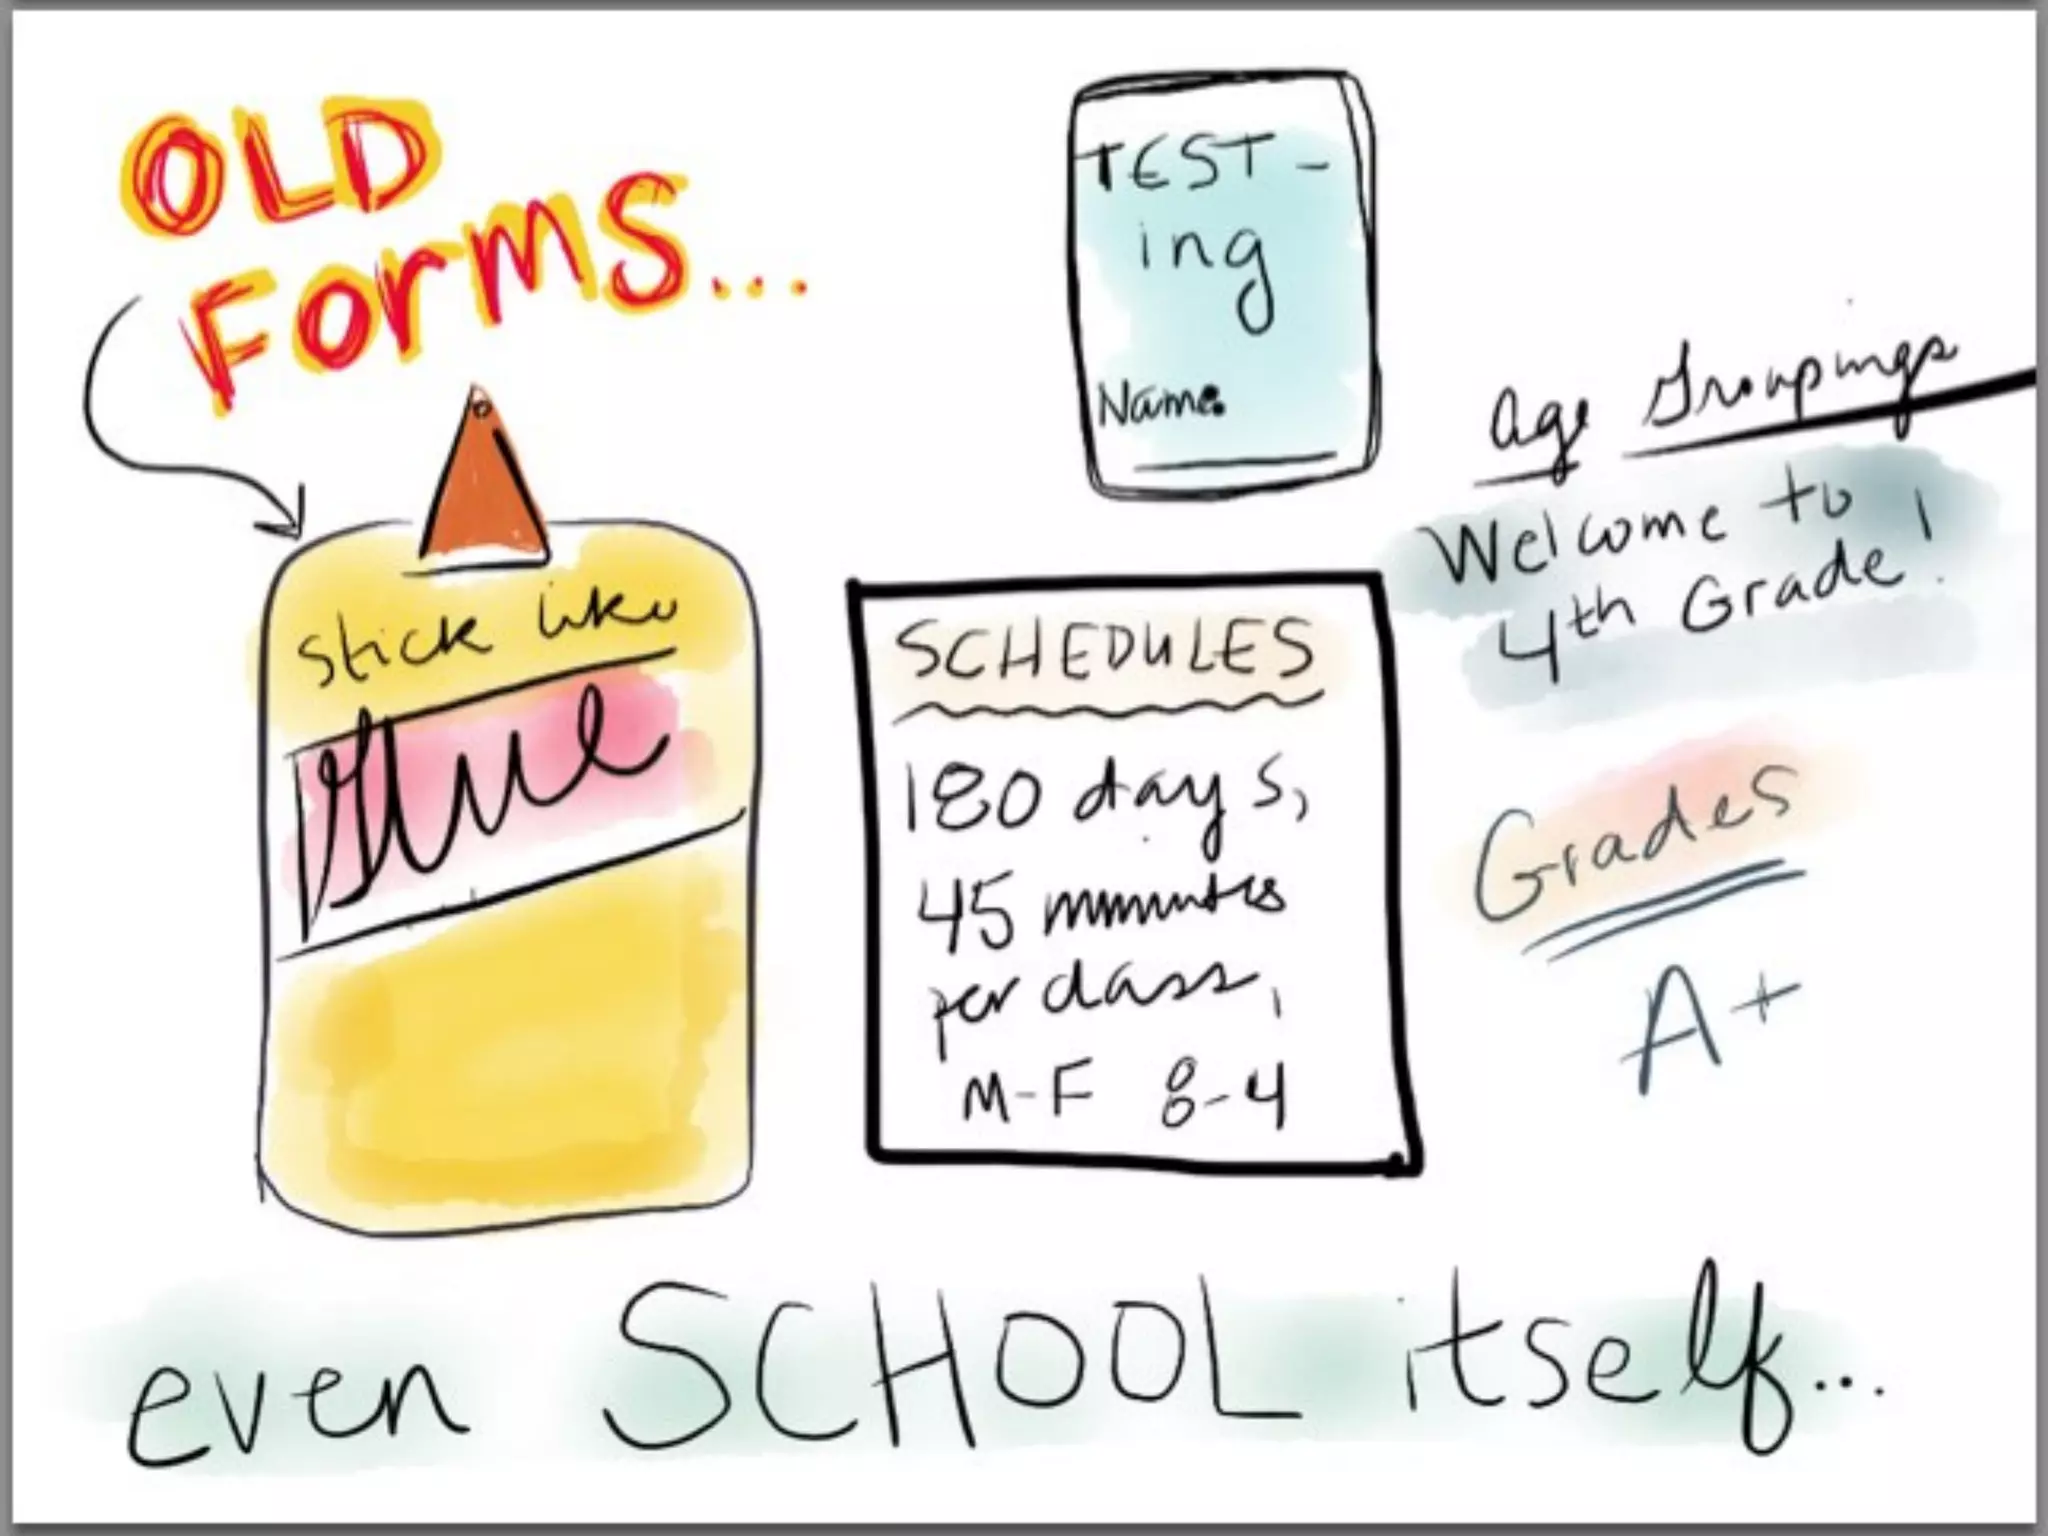 OLD
FORMS...
stick like
Glue
TEST-
ing
Name
SCHEDULES
180 days,
45 minutes
per class,
M-F 8-4
Age Groupings
Welcome to
4th Grade!
Grades
A+
even SCHOOL itself...